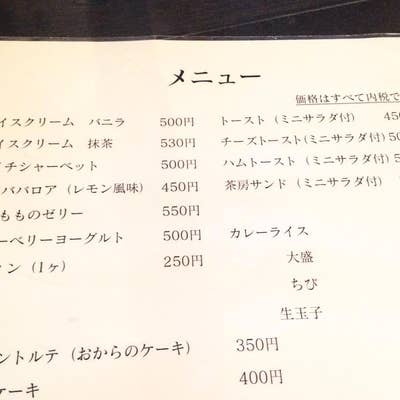 メニュー
価格はすべて内税で
イスクリーム　バニラ　500円
イスクリーム　抹茶　530円
イチシャーベット　500円
ババロア（レモン風味）　450円
もものゼリー　550円
ーベリーヨーグルト　500円
ン（1ヶ）　250円
ントルテ（おからのケーキ）　350円
ケーキ　400円
トースト（ミニサラダ付）　45
チーズトースト(ミニサラダ付) 50
ハムトースト（ミニサラダ付）
茶房サンド（ミニサラダ付）
カレーライス
大盛
ちび
生玉子